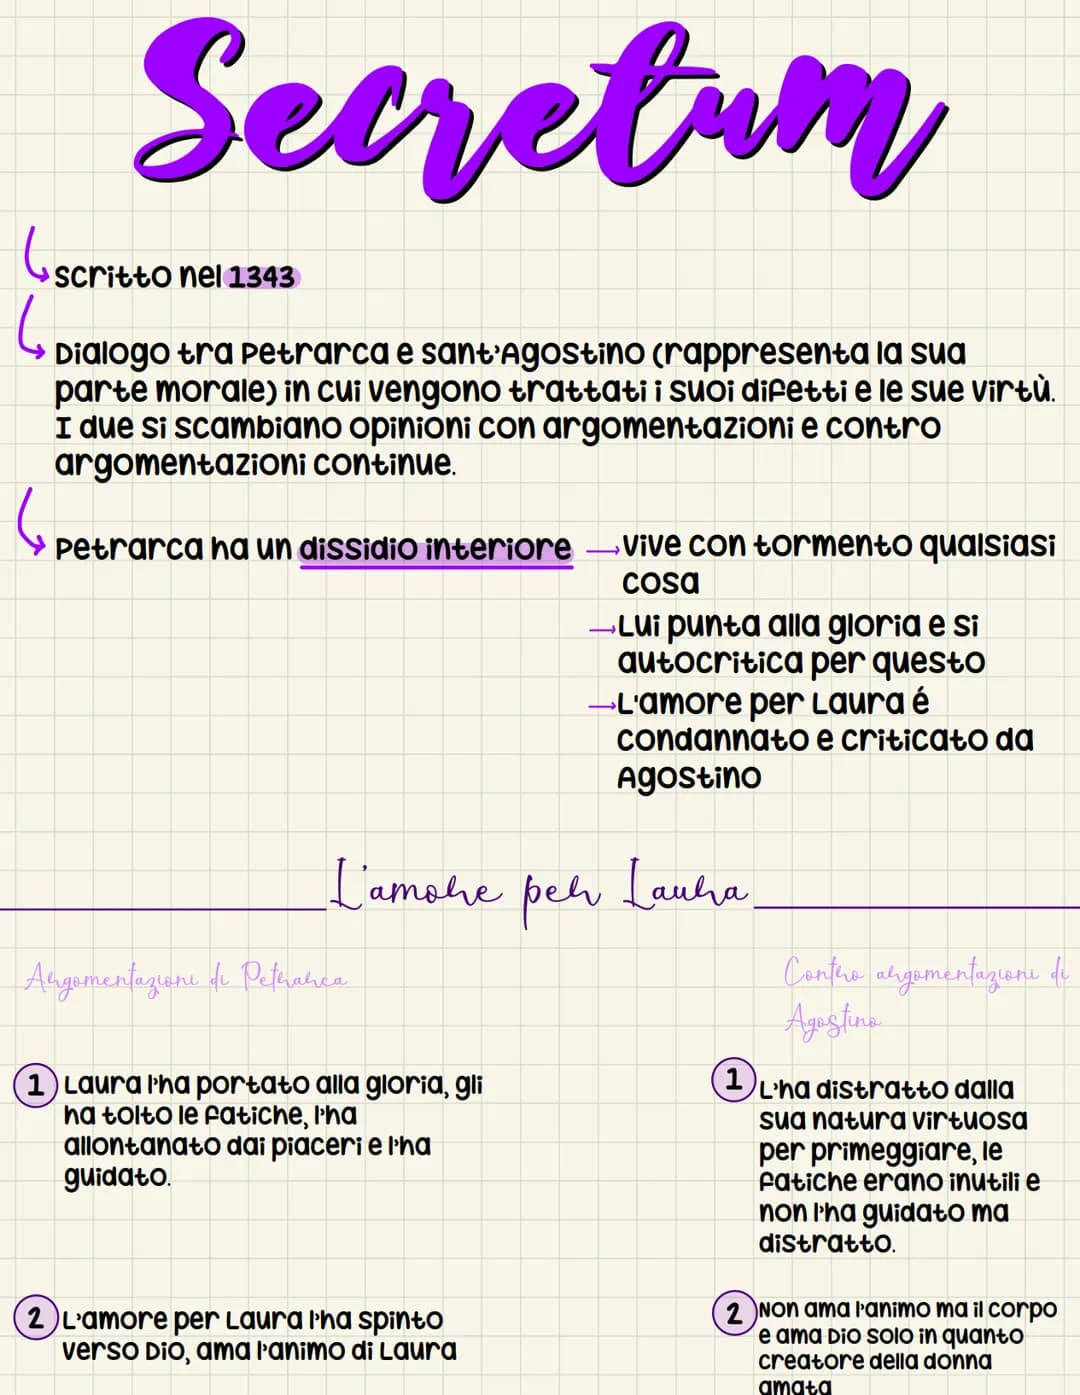 Secretum
scritto nel 1343
Dialogo tra Petrarca e sant'Agostino (rappresenta la sua
parte morale) in cui vengono trattati i suoi difetti e le sue virtù.
I due si scambiano opinioni con argomentazioni e contro
argomentazioni continue.
Petrarca ha un dissidio interiore
→Vive con tormento qualsiasi
cosa
→Lui punta alla gloria e si
autocritica per questo
→L'amore per Laura é
condannato e criticato da
Agostino
L'amore per Laura
Argomentazioni di Petrarca
Contro argomentazioni di
Agostino
1 Laura l'ha portato alla gloria, gli
ha tolto le fatiche, l'ha
allontanato dai piaceri e l'ha
guidato.
1 L'ha distratto dalla
sua natura virtuosa
per primeggiare, le
fatiche erano inutili e
non l'ha guidato ma
distratto.
2 L'amore per Laura l'ha spinto
verso Dio, ama l'animo di Laura
2 Non ama l'animo ma il corpo
e ama Dio solo in quanto
creatore della donna
amata